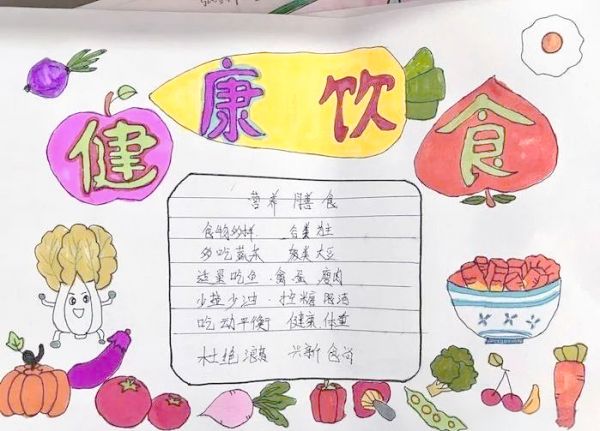 健康饮食
营养膳食
食物多样 谷类为主
多吃蔬果 奶类大豆
适量吃鱼·禽蛋·瘦肉
少盐少油·控糖限酒
吃动平衡 健康体重
杜绝浪费 兴新食尚